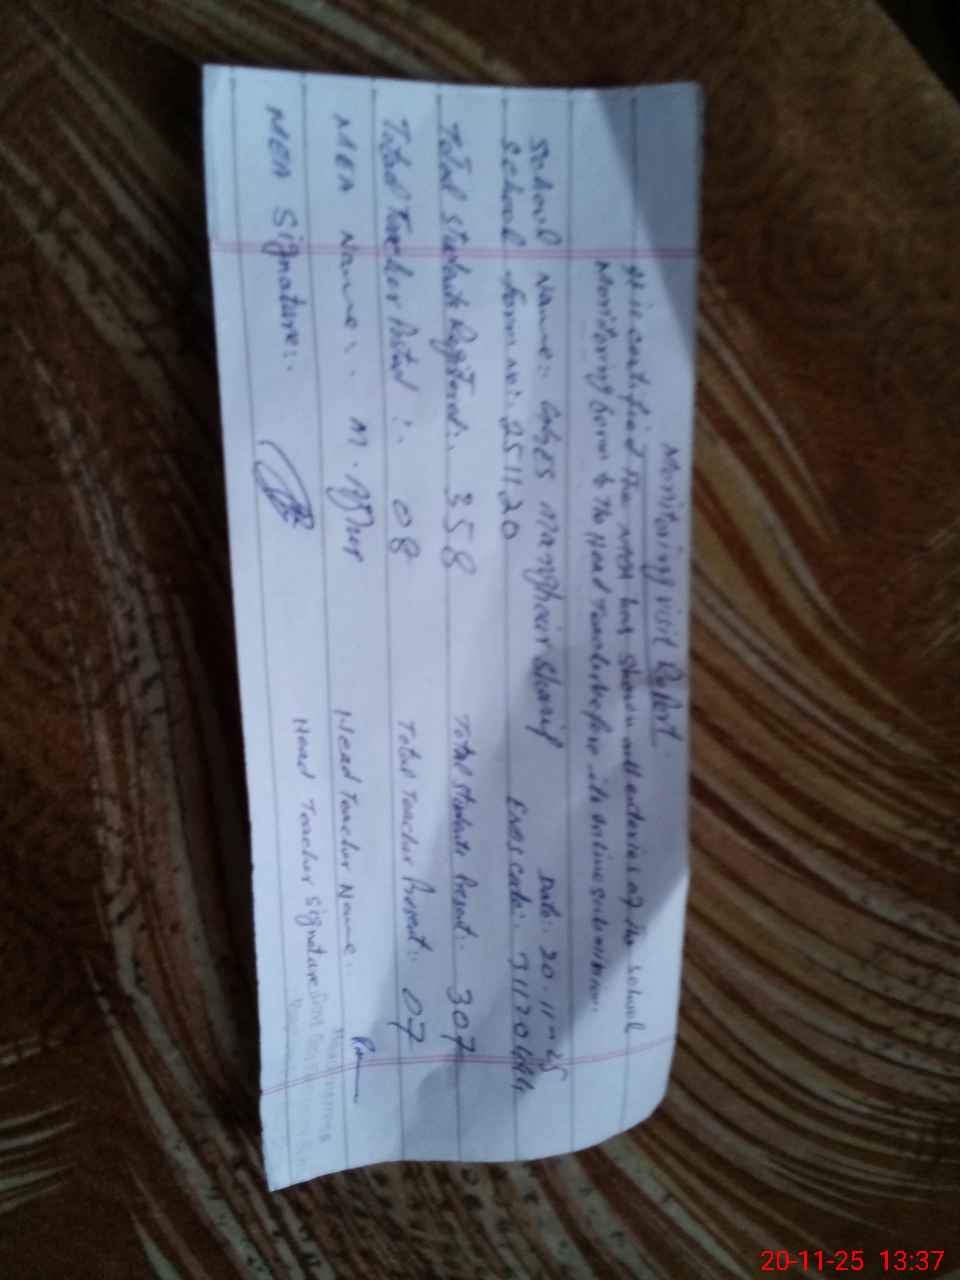 Monitoring visit Report
It is certified The MEA has shown all enteries of the school
Monitoring form to The Head Teacher before its online submission.
School Name:- GGES Manghair Sharif Date:- 20-11-25
School form no:- 251120 Emis code:-
Total Students Registered:- 358 Total Students Present:- 307
Total Teacher Posted:- 08 Total Teacher Present:- 07
MEA Name:- M. Head Teacher Name:-
MEA Signature:- Head Teacher Signature
20-11-25 13:37